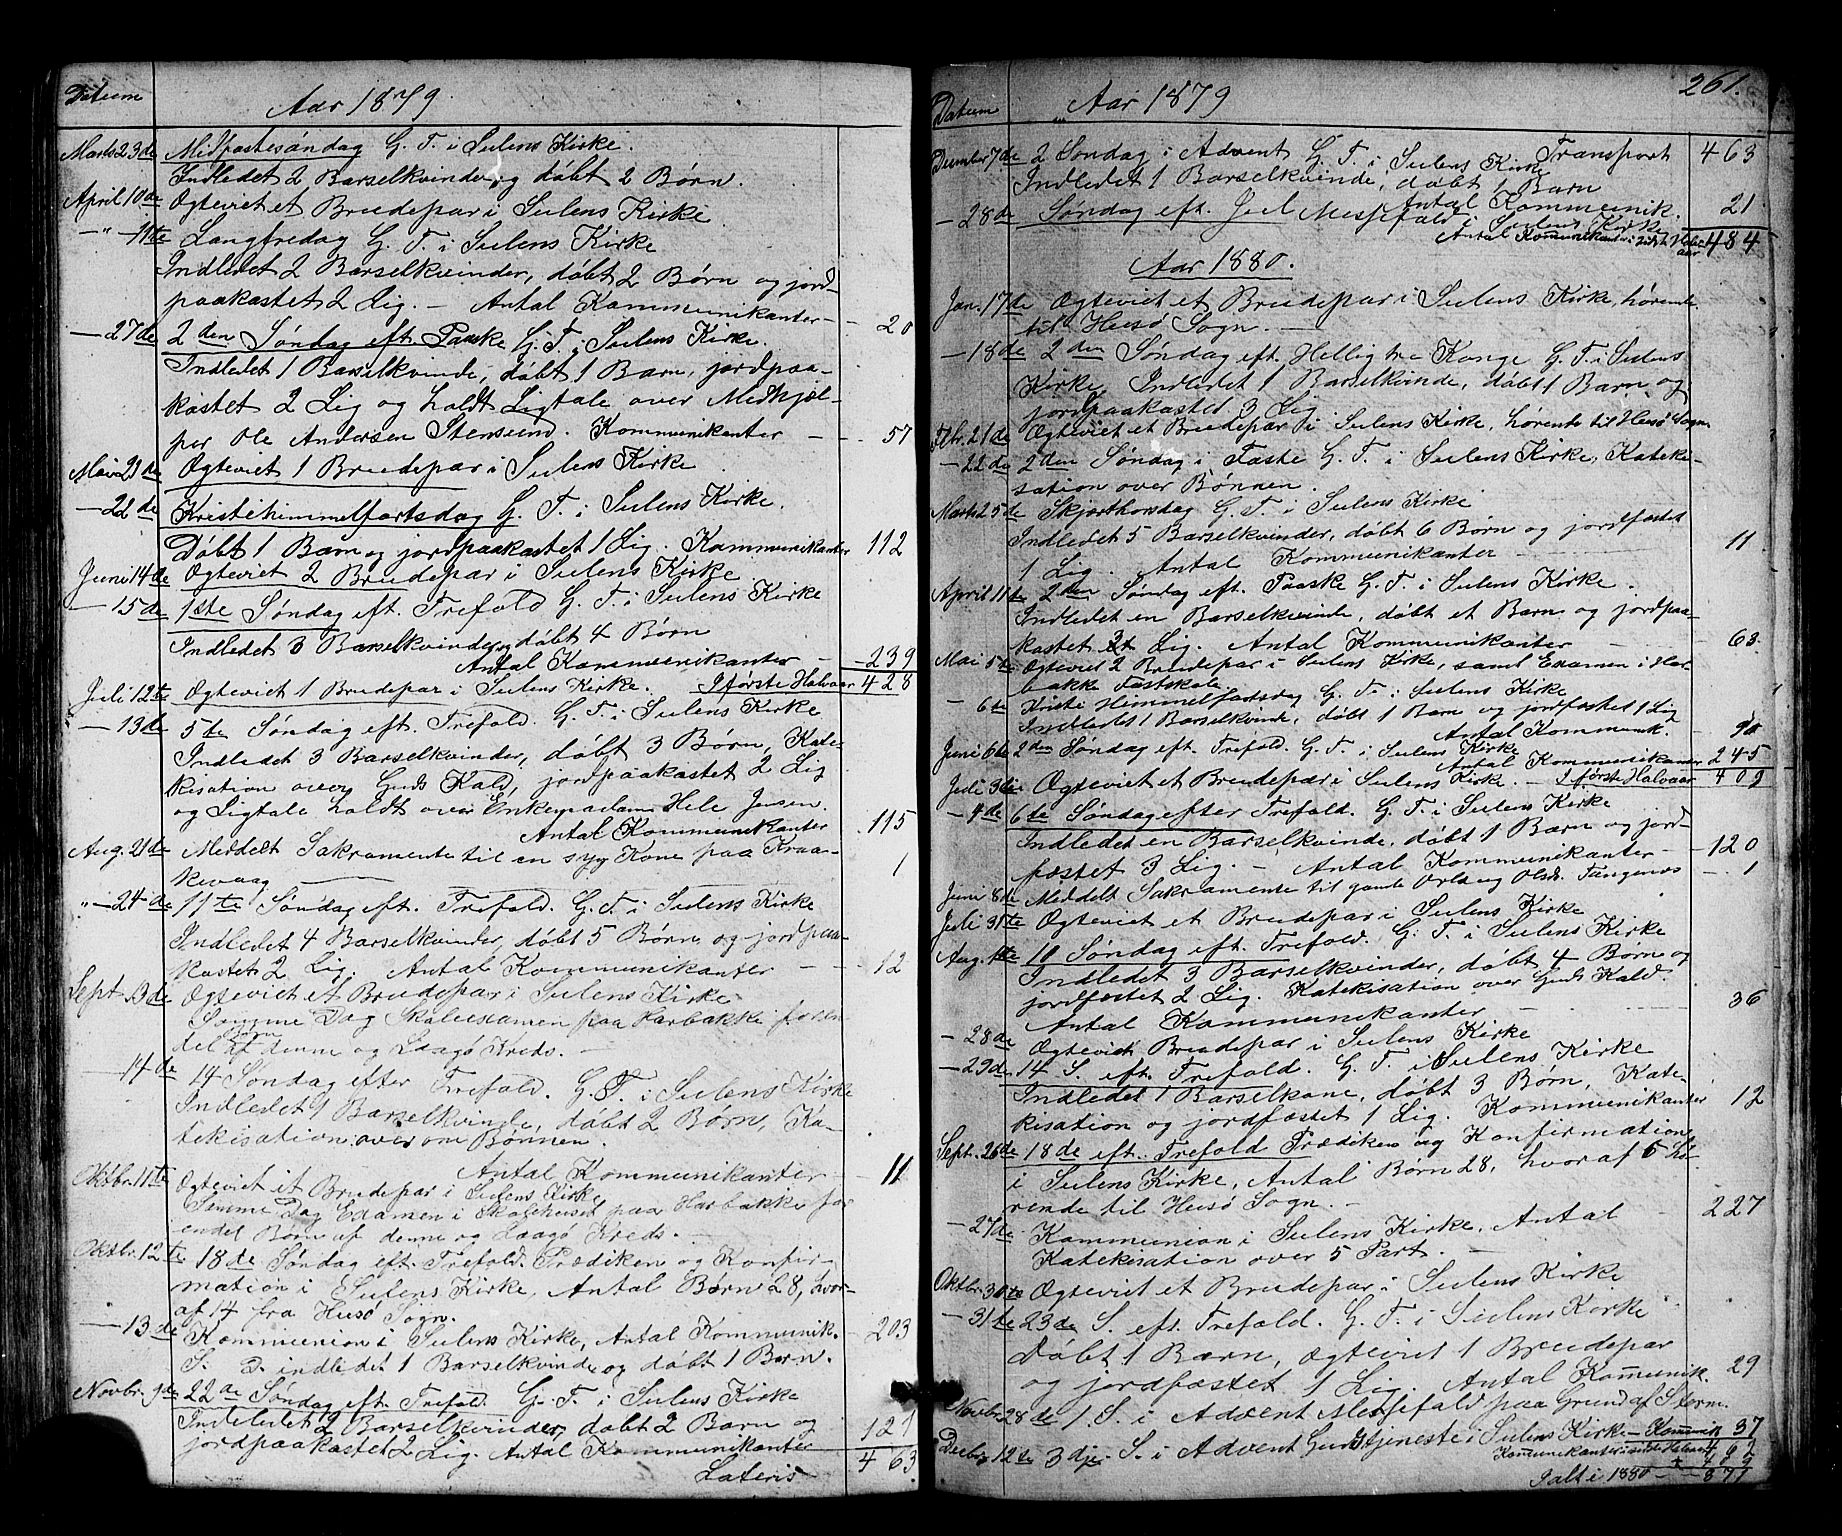 Datum Aar 1879
Marts 23de Midfastesøndag G. T. i Sulens Kirke.
Indledet 2 Barselkvinder og døbt 2 Børn.
April 10de Ogteviet et Brudepar i Sulens Kirke
-"- 11te Langfredag G. T. i Sulens Kirke
Indledet 2 Barselkvinder, døbt 2 Børn og jord-
paakastet 2 Lig. - Antal Kommunikanter - 20
- 27de 2den Søndag eft. Paaske G. T. i Sulens Kirke.
Indledet 1 Barselkvinde, døbt 1 Barn, jordpaa-
kastet 2 Lig og holdt Ligtale over Medhjæl-
per Ole Andersen Stensund. Kommunikanter - 57
Mai 21de Ogteviet 1 Brudepar i Sulens Kirke
- 22de Kristihimmelfartsdag G. T. i Sulens Kirke.
Døbt 1 Barn og jordpaakastet 1 Lig. Kommunikanter 112
Juni 14de Ogteviet 2 Brudepar i Sulens Kirke
- 15de 1ste Søndag eft. Trefold G. T. i Sulens Kirke
Indledet 3 Barselkvinder og døbt 4 Børn
Antal Kommunikanter - 239
Juli 12te Ogteviet 1 Brudepar i Sulens Kirke. I første Halvaar 428
- 13de 5te Søndag eft. Trefold. G. T. i Sulens Kirke
Indledet 3 Barselkvinder, døbt 3 Børn, Kate-
kisation over Guds Kald, jordpaakastet 2 Lig
og Ligtale holdt over Enkemadam Hele Jensen.
Antal Kommunikanter 115
Aug. 21de Meddelt Sakramente til en syg Kone paa Kraa-
kevaag 1
"- 24de 11te Søndag eft. Trefold. G. T. i Sulens Kirke
Indledet 4 Barselkvinder, døbt 5 Børn og jordpaa-
kastet 2 Lig. Antal Kommunikanter - 12
Sept. 13de Ogteviet et Brudepar i Sulens Kirke
Samme Dag Skoleexamen paa Harbakke foren
del Børn af denne og Laagø Kreds. -
- 14de 14 Søndag efter Trefold. G. T. i Sulens Kirke
Indledet 1 Barselkvinde, døbt 2 Børn, Ka-
tekisation over om Bønnen.
Antal Kommunikanter - 11
Oktbr. 11te Ogteviet et Brudepar i Sulens Kirke
Samme Dag Examen i Skolehuset paa Harbakke for
endel Børn af denne og Laagø Kreds. -
Oktbr. 12te 18de Søndag eft. Trefold. Prædiken og Konfir-
mation i Sulens Kirke, Antal Børn 28, hvor-
af 14 fra Husø Sogn.
- 13de Kommunion i Sulens Kirke, Antal Kommunik. 203
S. D. indledet 1 Barselkvinde og døbt 1 Barn.
Novbr. 9de 22de Søndag eft. Trefold. G. T. i Sulens Kirke
Indledet 2 Barselkvinder, døbt 2 Barn og
jordpaakastet 2 Lig. Antal Kommunikanter 121
Lateris 463
261.
Datum Aar 1879
December 7de 2 Søndag i Advent G. T. i Sulens Kirke Transport 463
Indledet 1 Barselkvinde, døbt 1 Barn
Antal Kommunik. 21
- 28de Søndag eft. Jul Messefald i Sulens Kirke
Antal Kommunikanter i sidste Halv-
aar 484
Aar 1880.
Jan. 17de Ogteviet et Brudepar i Sulens Kirke, hørende
til Husø Sogn. -
- 18de 2den Søndag eft. Hellig tre Konge G. T. i Sulens
Kirke. Indledet 1 Barselkvinde, døbt 1 Barn og
jordpaakastet 3 Lig
Febr. 21de Ogteviet et Brudepar i Sulens Kirke, hørende til Husø Sogn
- 22de 2den Søndag i Faste G. T. i Sulens Kirke, Kateki-
sation over Bønnen.
Marts 25de Skjærthorsdag G. T. i Sulens Kirke
Indledet 5 Barselkvinder, døbt 6 Børn og jordfæstet
1 Lig. Antal Kommunikanter - 11
April 11te 2den Søndag eft. Paaske G. T. i Sulens Kirke.
Indledet en Barselkvinde, døbt et Barn og jordpaa-
kastet Lig. Antal Kommunikanter - 63
Mai 5te Ogteviet 2 Brudepar i Sulens Kirke, samt Examen i Har
bakke Fastskole
- 6te Kristi Himmelfartsdag G. T. i Sulens Kirke
Indledet 1 Barselkvinde, døbt 1 Barn og jordfæstet 1 Lig
Antal Kommunik. - 90
Juni 6te 2den Søndag eft. Trefold. G. T. i Sulens Kirke
Antal Kommunikanter 245
Juli 3die Ogteviet et Brudepar i Sulens Kirke. - I første Halvaar 409
- 4de 6te Søndag efter Trefold. G. T. i Sulens Kirke
Indledet en Barselkvinde, døbt 1 Barn og jord-
fæstet 3 Lig. - Antal Kommunikanter - 120
Juni 8de Meddelt Sakramente til gamle Olsd. Tangenæs - 1
Juli 31te Ogteviet et Brudepar i Sulens Kirke
Aug. 1ste 10 Søndag eft. Trefold. G. T. i Sulens Kirke
Indledet 3 Barselkvinder, døbt 4 Børn og
jordfæstet 2 Lig. Katekisation over Guds Kald.
Antal Kommunikanter - 36
- 28de Ogteviet Brudepar i Sulens Kirke
- 29de 14 S. eft. Trefold. G. T. i Sulens Kirke
Indledet 1 Barselkone, døbt 3 Børn, Kate-
kisation og jordfæstet 1 Lig. Kommunikanter 12
Sept. 26de 18de eft. Trefold Prædiken og Konfirmation
i Sulens Kirke, Antal Børn 28, hvoraf 6 hø-
rende til Husø Sogn. -
- 27de Kommunion i Sulens Kirke, Antal - 227
Katekisation over 5 Part. -
Oktbr. 30te Ogteviet et Brudepar i Sulens Kirke
- 31te 23de S. eft. Trefold. G. T. i Sulens Kirke
Døbt 1 Barn, Ogteviet 1 Brudepar
og jordfæstet 1 Lig. Antal Kommunik. 29
Novbr. 28de 1. S. i Advent Messefald paa Grund af Storm
Decbr. 12te 3dje S. i Advent Gudstjeneste i Sulens Kirke. - Kommunik 37
Kommunikanter i sidste Halvaar 462
+ 409
Ialt i 1880 - - 871